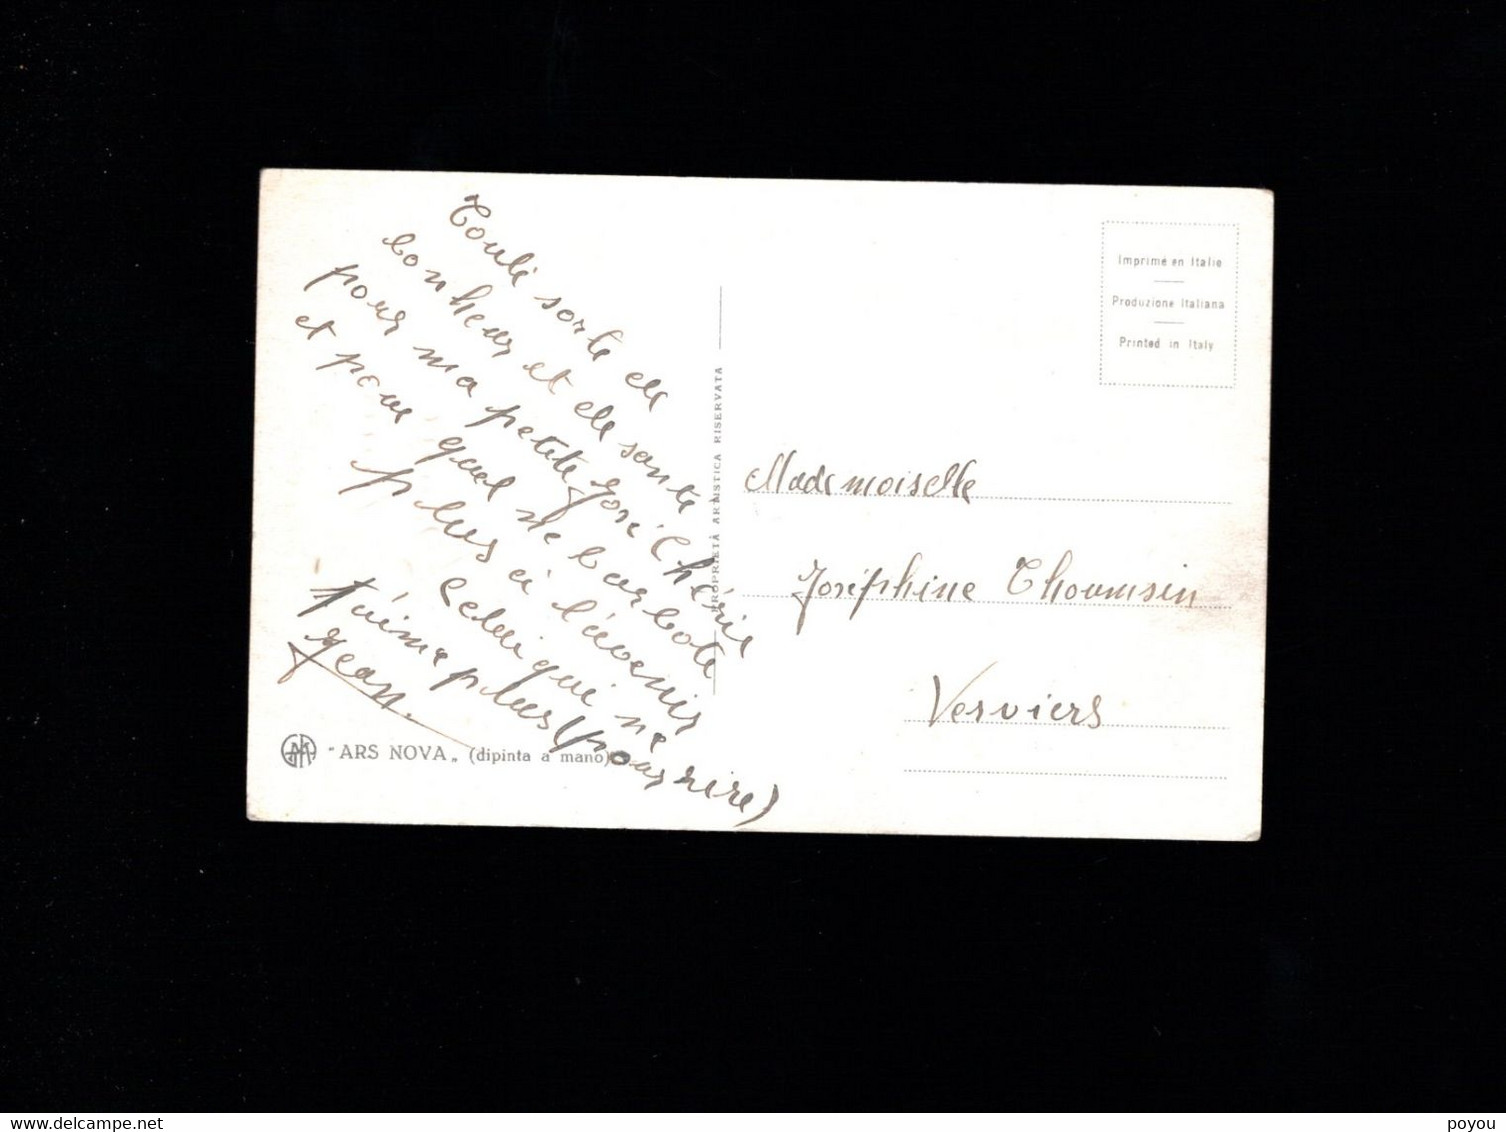 Toute sorte de
bonheur et de santé
pour ma petite José Chérie
et pour quel ne barbote
plus à l'avenir
Celui qui ne
t'aime plus (pour rire)
Jean.
"ARS NOVA„ (dipinta a mano)
PROPRIETÀ ARTISTICA RISERVATA
Imprimé en Italie
Produzione Italiana
Printed in Italy
Mademoiselle
Joséphine Thoumsin
Verviers
www.delcampe.net
poyou